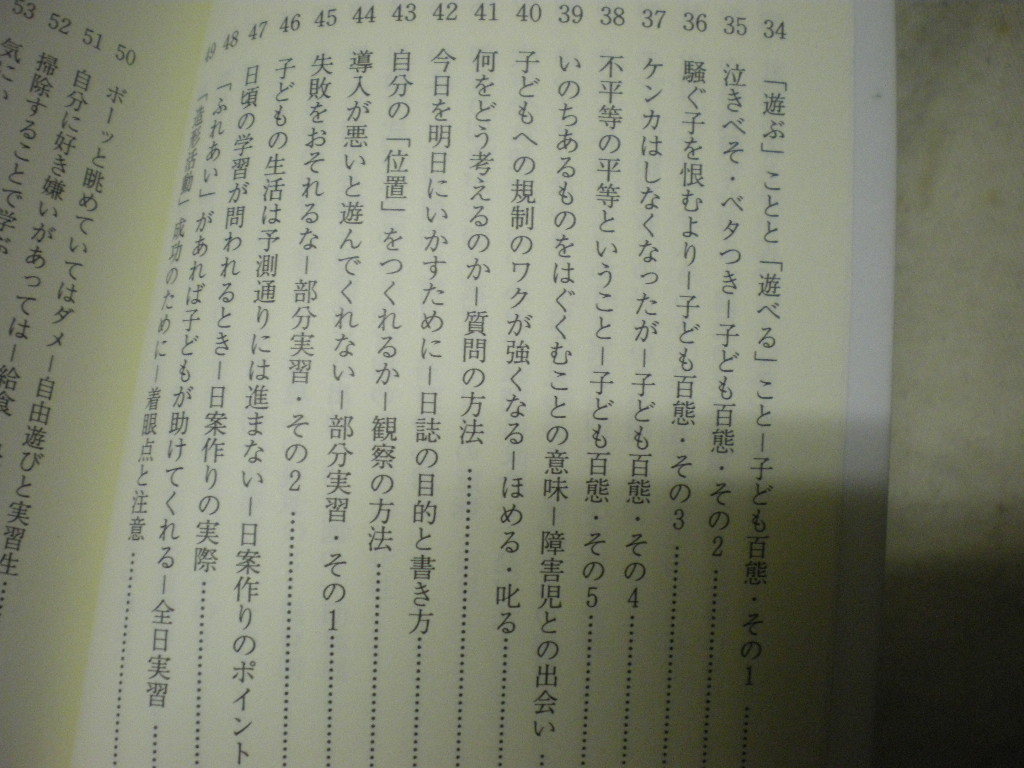 34 「遊ぶ」ことと「遊べる」こと―子ども百態・その1
35 泣きべそ・ベタつき―子ども百態・その2
36 騒ぐ子を恨むより―子ども百態・その3
37 ケンカはしなくなったが―子ども百態・その4
38 不平等の平等ということ―子ども百態・その5
39 いのちあるものをはぐくむことの意味―障害児との出会い
40 子どもへの規制のワクが強くなる―ほめる・叱る
41 何をどう考えるのか―質問の方法
42 今日を明日にいかすために―日誌の目的と書き方
43 自分の「位置」をつくれるか―観察の方法
44 導入が悪いと遊んでくれない―部分実習・その1
45 失敗をおそれるな―部分実習・その2
46 子どもの生活は予測通りには進まない―日案作りのポイント
47 日頃の学習が問われるとき―日案作りの実際
48 「ふれあい」があれば子どもが助けてくれる―全日実習
49 「造形活動」成功のために―着眼点と注意
50 ボーッと眺めていてはダメ―自由遊びと実習生
51 自分に好き嫌いがあっては―給食
52 掃除することで学ぶ
53 気に